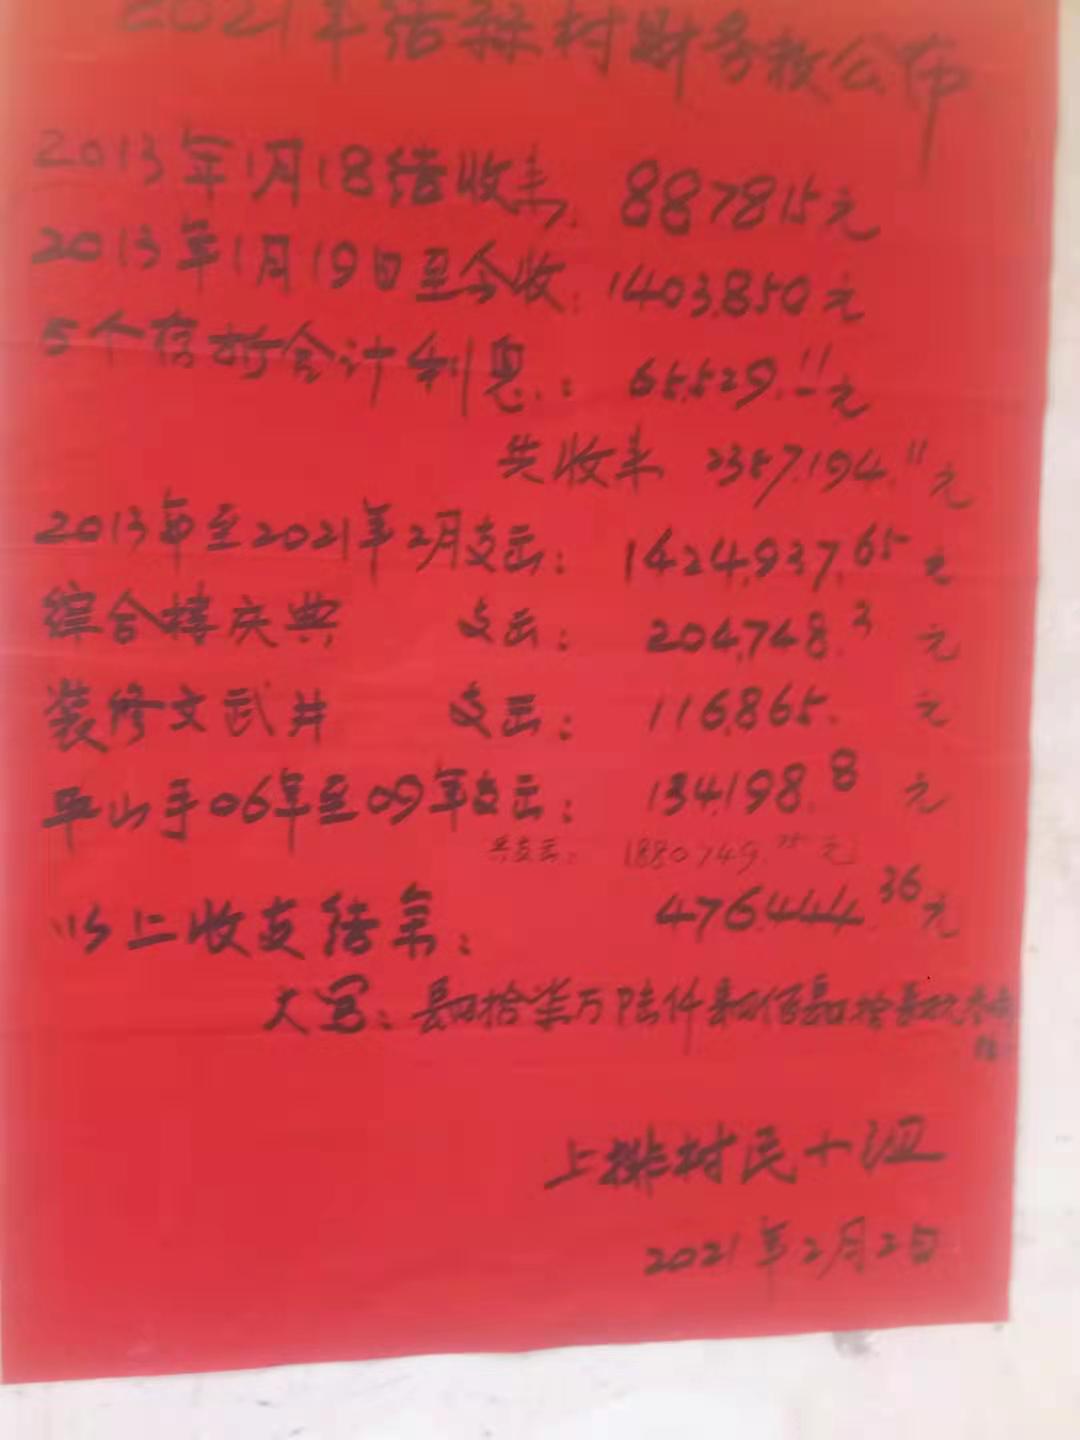 2021年结 村财务数公布
2013年1月18结收来: 887815元
2013年1月19日至今收: 1403,850元
5个存折合计利息: 65,529.11元
共收来 2357,194.11元
2013年至2021年2月支出: 1424,937.65元
综合楼庆典 支出: 204,748.3元
装修文武井 支出: 116,865.元
平山手06年至09年支出: 134,198.8元
共支出: 1880749.75元
以上收支结余: 476,444.36元
大写: 肆拾柒万陆仟肆佰肆拾肆
上排村民小组
2021年2月2日